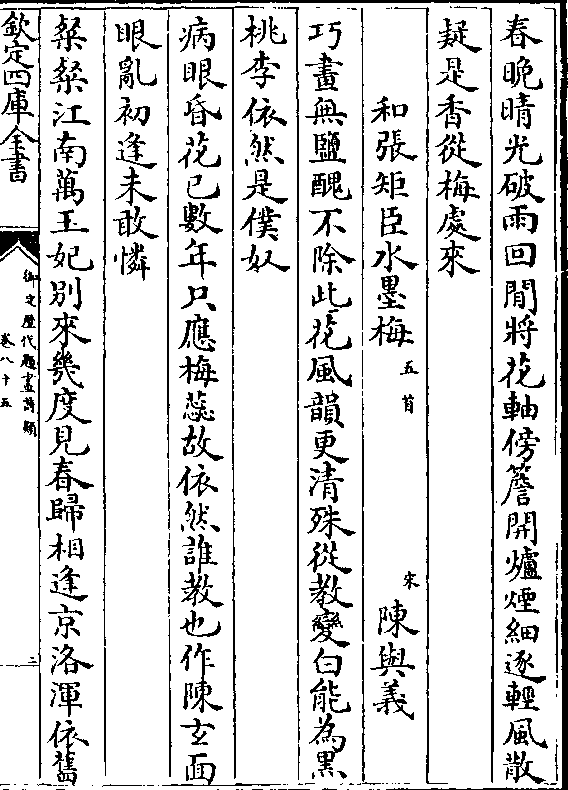 春晚晴光破雨回閒將花軸傍簷開爐煙細逐輕風散
疑是香從梅處來
和張矩臣水墨梅 五首 宋 陳與義
巧畫無鹽醜不除此花風韻更清殊從教變白能為黑
桃李依然是僕奴
病眼昏花已數年只應梅蕊故依然誰教也作陳玄面
眼亂初逢未敢憐
粲粲江南萬玉妃別來幾度見春歸相逢京洛渾依舊
欽定四庫全書
御定歷代題畫詩類
卷八十五
二